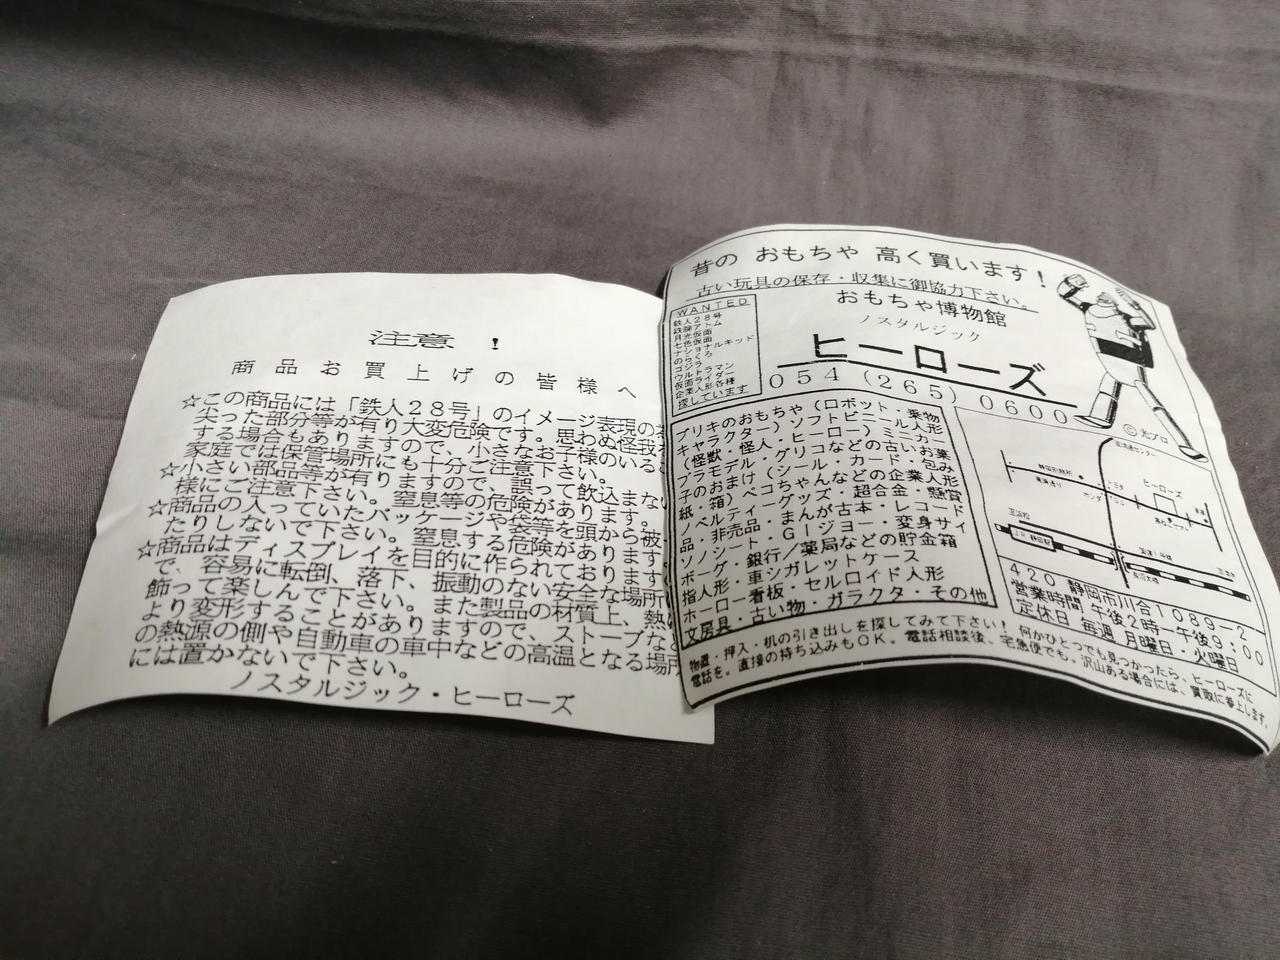 注意！
商品お買上げの皆様へ
☆この商品には「鉄人２８号」のイメージ表現の
尖った部分等が有り大変危険です。思わぬ怪我
する場合もありますので、小さなお子様のいる
家庭では保管場所にも十分ご注意下さい。
☆小さい部品等が有りますので、誤って飲込まない
様にご注意下さい。窒息等の危険があります。
☆商品の入っていたパッケージや袋等を頭から被
たりしないで下さい。窒息する危険があります。
☆商品はディスプレイを目的に作られております
で、容易に転倒、落下、振動のない安全な場所
飾って楽しんで下さい。また製品の材質上、熱
より変形することがありますので、ストーブな
の熱源の側や自動車の車中などの高温となる場所
には置かないで下さい。
ノスタルジック・ヒーローズ
昔の おもちゃ 高く買います！
古い玩具の保存・収集に御協力下さい。
おもちゃ博物館
ノスタルジック
ヒーローズ
054(265)0600
WANTED
鉄人２８号
鉄腕アトム
月光仮面
七色仮面
ナショナルキッド
のらくろ
ゴジラ
ウルトラマン
仮面ライダー
企業人形各種
探しています
©光プロ
ブリキのおもちゃ（ロボット・乗物
キャラクター）ソフトビニール人形
（怪獣・怪人・ヒーロー）ミニカー
プラモデル・グリコなどの古いお菓
子のおまけ（シール・カード・包み
紙・箱）ペコちゃんなどの企業人形
ノベルティーグッズ・超合金・懸賞
品・非売品・まんが古本・レコード
ソノシート・ＧＩジョー・変身サイ
ボーグ・銀行／薬局などの貯金箱
指人形・車シガレットケース
ホーロー看板・セルロイド人形
文房具・古い物・ガラクタ・その他
ヒーローズ
420 静岡市川合1089-2
営業時間 午後2時ー午後9:00
定休日 毎週 月曜日・火曜日
物置・押入・机の引き出しを探してみて下さい！ 何かひとつでも見つかったら、ヒーローズに
電話を。直接の持ち込みもＯＫ。電話相談後、宅急便でも。沢山ある場合には、買取に参上します。